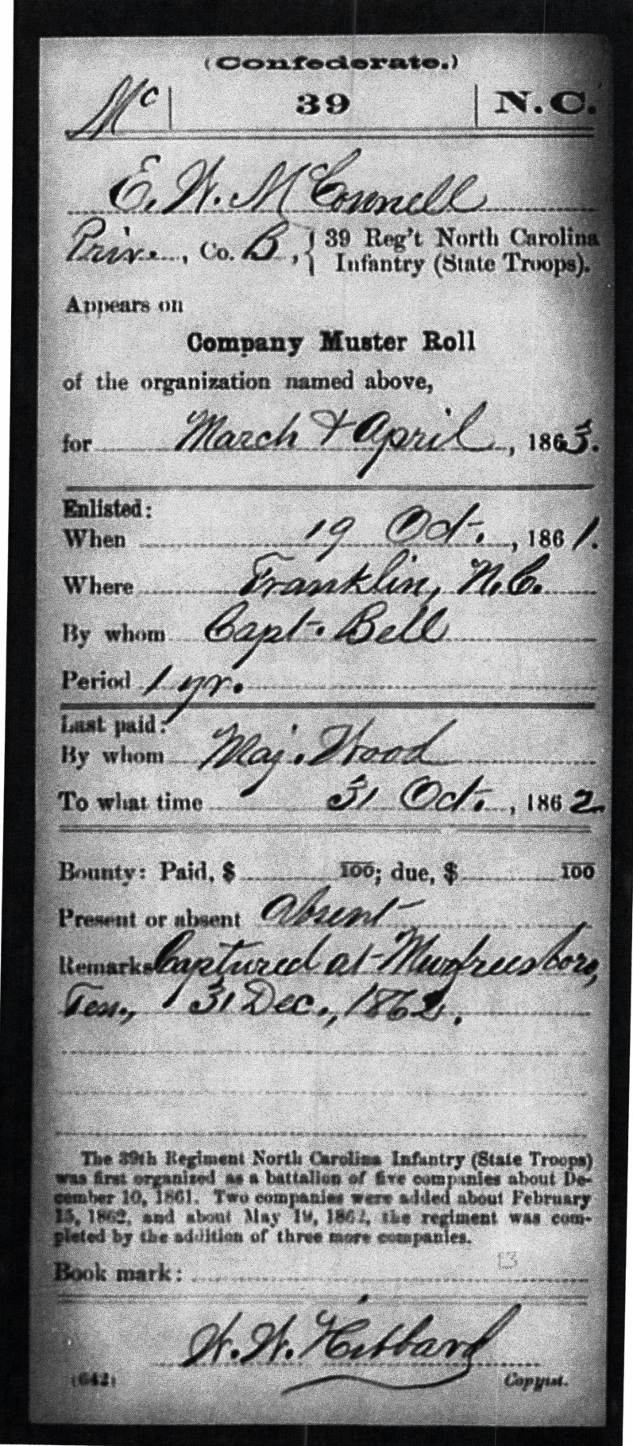 (Confederate.)
Mc | 39 | N.C.
E. W. McConnell
Priv., Co. B, { 39 Reg't North Carolina
Infantry (State Troops).
Appears on
Company Muster Roll
of the organization named above,
for March & April, 1863.
Enlisted:
When 19 Oct., 1861.
Where Franklin, N.C.
By whom Capt. Bell
Period 1 yr.
Last paid:
By whom Maj. Wood
To what time 31 Oct., 1862
Bounty: Paid, $ 100; due, $ 100
Present or absent Absent
Remarks Captured at Murfreesboro,
Ten., 31 Dec., 1862.
The 39th Regiment North Carolina Infantry (State Troops)
was first organized as a battalion of five companies about De-
cember 10, 1861. Two companies were added about February
15, 1862, and about May 19, 1862, the regiment was com-
pleted by the addition of three more companies.
13
Book mark:
W. W. Hibbard
(642) Copyist.